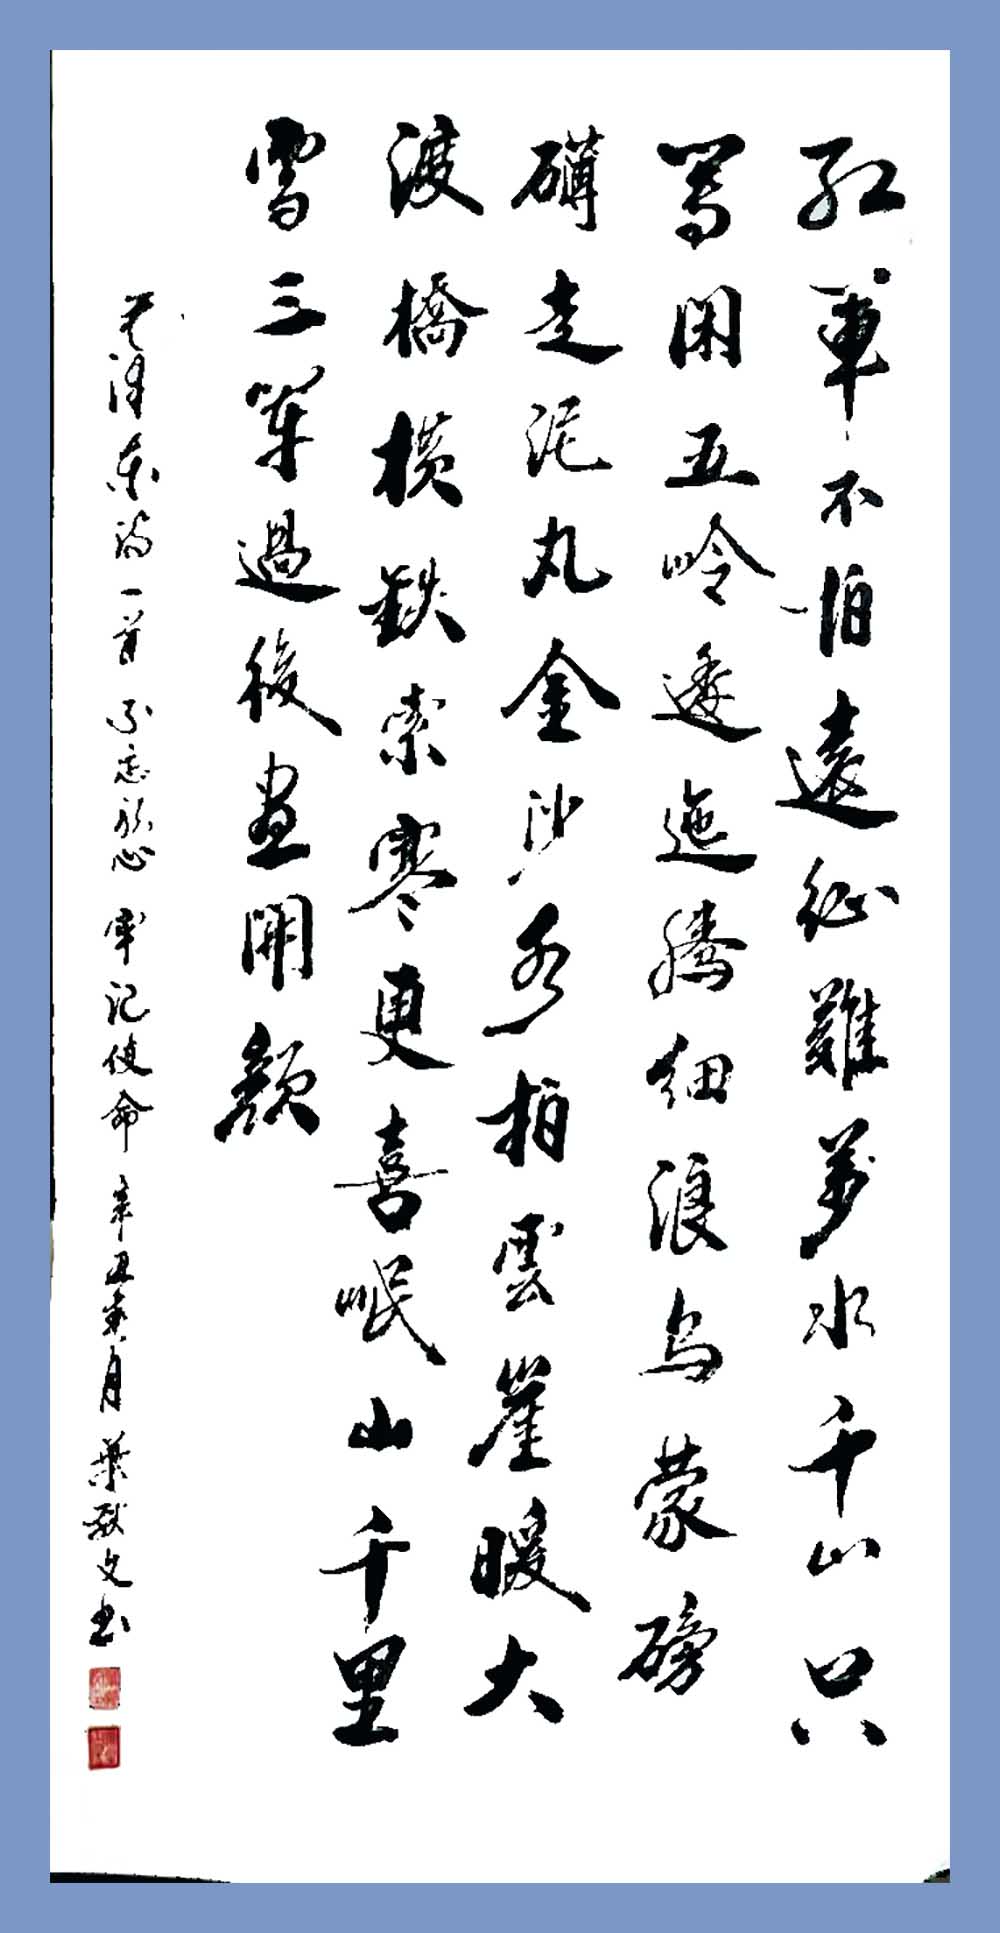 紅軍不怕遠征難萬水千山只
等閑五岭逶迤騰細浪烏蒙磅
礴走泥丸金沙水拍雲崖暖大
渡橋橫鉄索寒更喜岷山千里
雪三軍過後盡開顏
毛澤東詩一首 不忘初心 牢記使命 辛丑夏月 葉文书